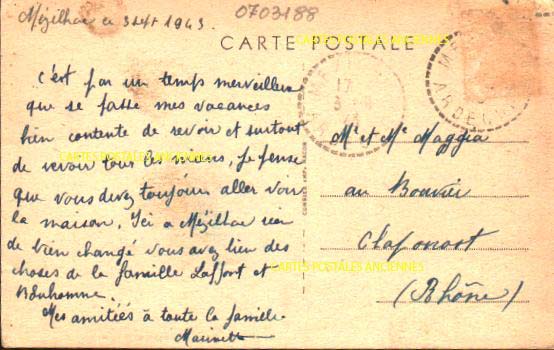 Mézilhac ce 3 sept 1943
0703188
CARTE POSTALE
CARTES POSTALES ANCIENNES
C'est par un temps merveilleux
que se passe mes vacances
bien contente de revoir et surtout
de revoir tous les miens, je pense
que vous devez toujours aller voir
la maison. Ici a Mézilhac rien
de bien changé vous avez bien des
choses de la famille Laffont et
Bonhomme.
Mes amitiés à toute la famille
Marinette
17
3-9
ARDECHE
Mr et Me Maggia
au Bouvier
Claponost
(Rhône)
CARTES POSTALES ANCIENNES
CARTES POSTALES ANCIENNES